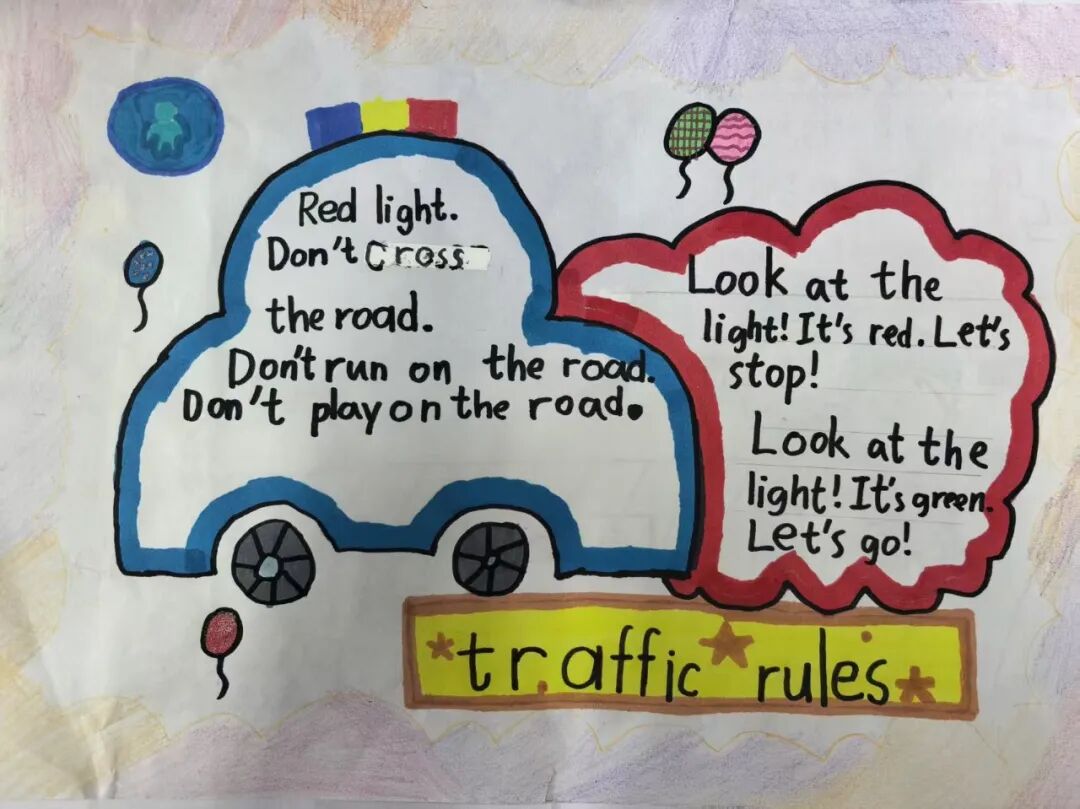 Red light.
Don't Cross
the road.
Don't run on the road.
Don't play on the road.
Look at the
light! It's red. Let's
stop!
Look at the
light! It's green.
Let's go!
traffic rules